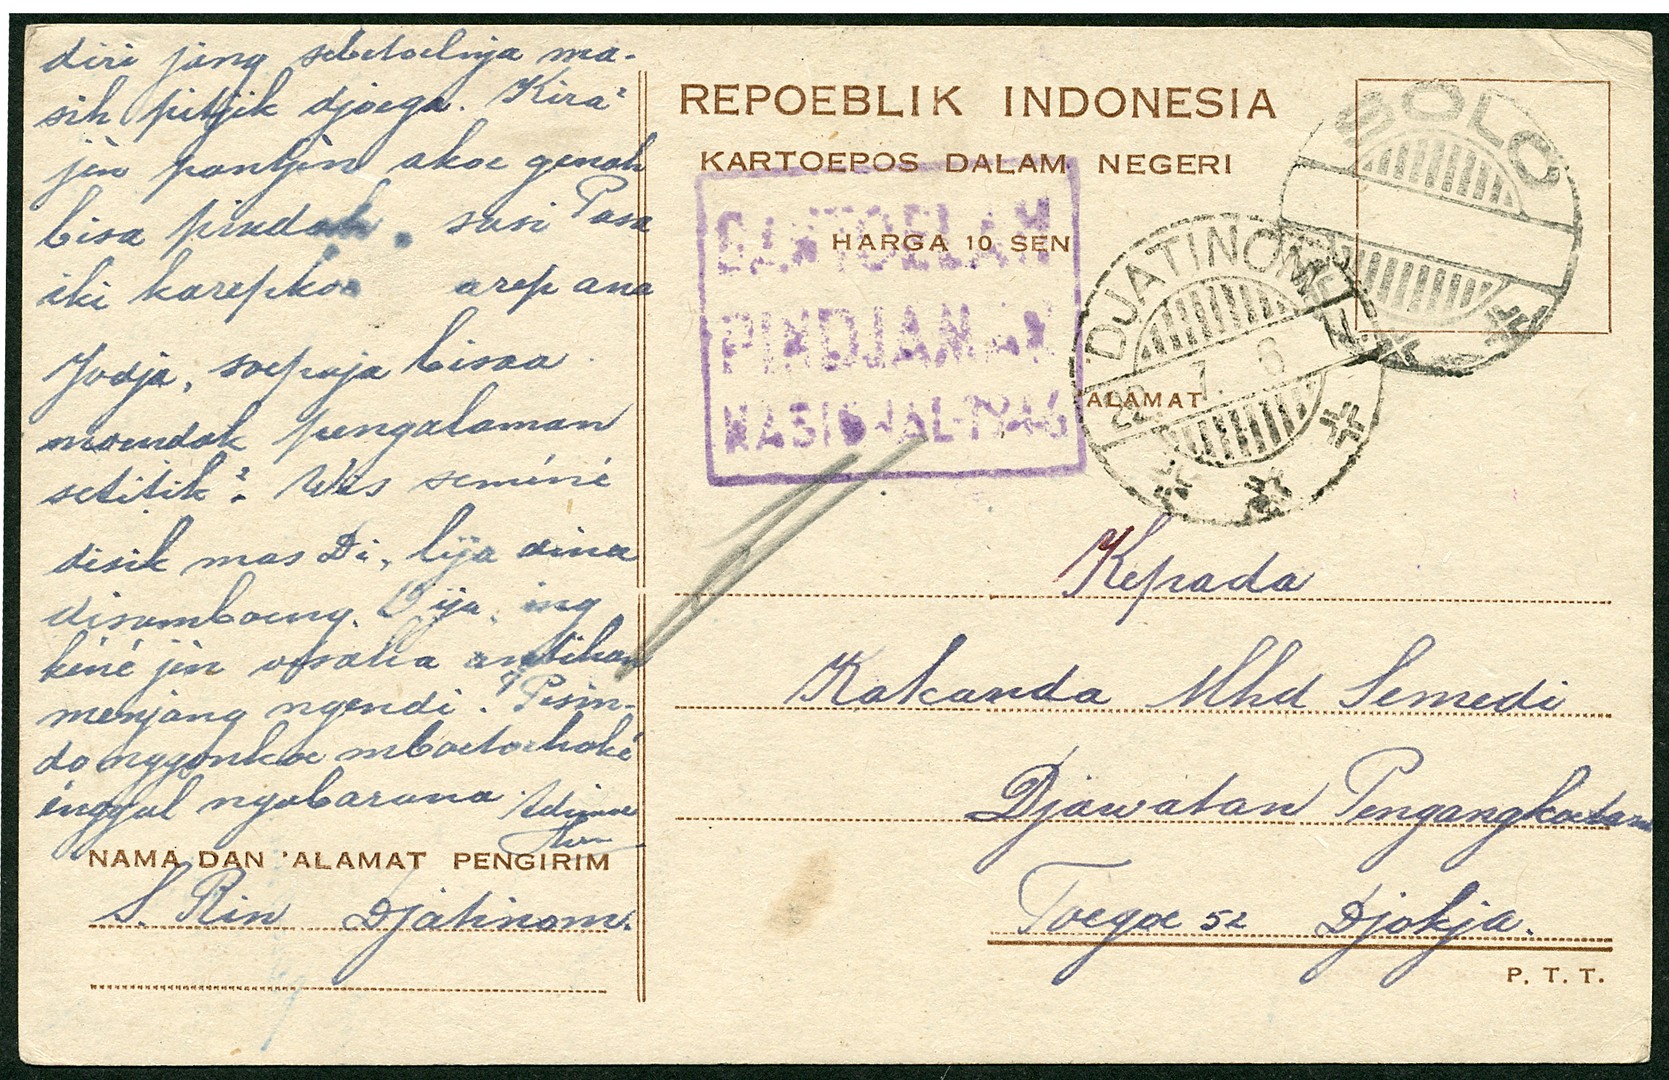 diri jang sebetoelnja ma-
sih pitjik djoega. Kira²
jèn pantjèn akoe genah
bisa pindah. susi Pasa
iki karepkoe arep ana
Jodja, soepaja bisaa
moendak pengalaman
setitik². Wis seméné
disik mas Di, lija dina
disamboeng. O ija, ing
kéné jèn oesaha
menjang ngendi? Pisin-
do nggonkoe mboetoehaké
énggal ngabarana. Adimoe
NAMA DAN ALAMAT PENGIRIM
S. Rin Djatinom.
REPOEBLIK INDONESIA
KARTOEPOS DALAM NEGERI
HARGA 10 SEN
BANTOELAH
PINDJAMAN
NASIONAL-1946
SOLO
DJATINOM
22. 7. 6
ALAMAT
Kepada
Kakanda Mhd Semedi
Djawatan Pengangkoetan
Toegoe 52 Djokja.
P. T. T.